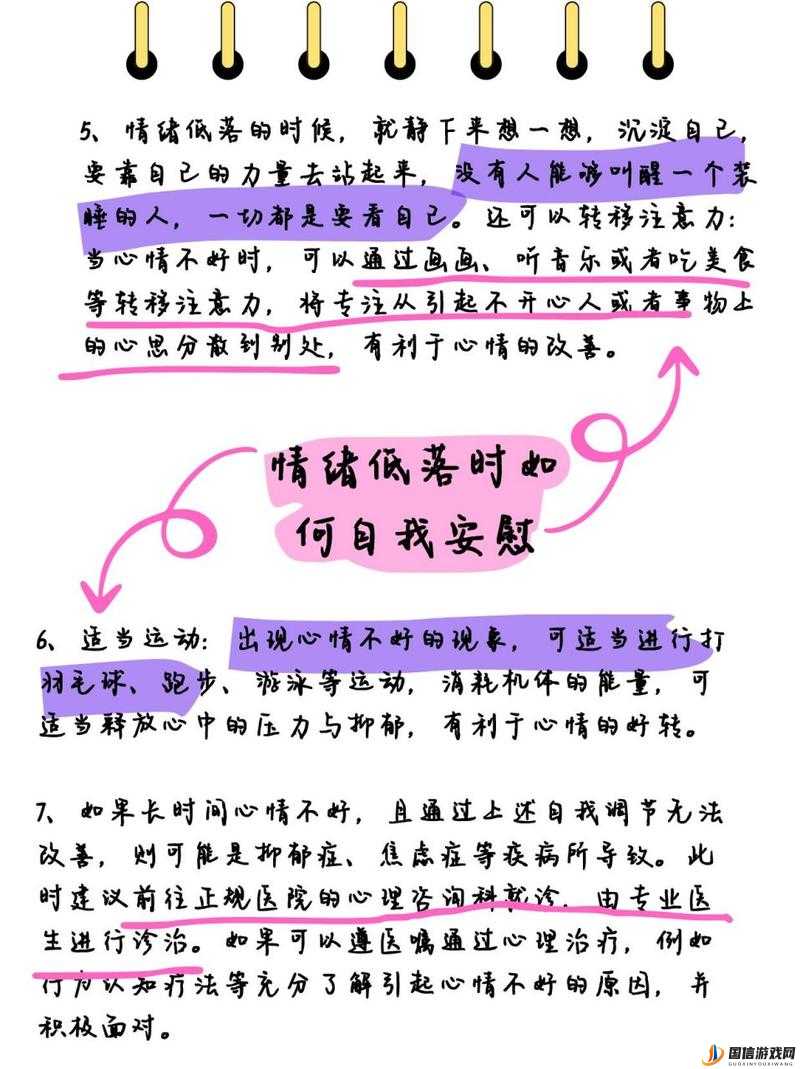 5、情绪低落的时候，就静下来想一想，沉淀自己，
要靠自己的力量去站起来，没有人能够叫醒一个装
睡的人，一切都是要看自己。还可以转移注意力：
当心情不好时，可以通过画画、听音乐或者吃美食
等转移注意力，将专注从引起不开心人或者事物上
的心思分散到别处，有利于心情的改善。
情绪低落时如
何自我安慰
6、适当运动：出现心情不好的现象，可适当进行打
羽毛球、跑步、游泳等运动，消耗机体的能量，可
适当释放心中的压力与抑郁，有利于心情的好转。
7、如果长时间心情不好，且通过上述自我调节无法
改善，则可能是抑郁症、焦虑症等疾病所导致。此
时建议前往正规医院的心理咨询科就诊，由专业医
生进行诊治。如果可以遵医嘱通过心理治疗，例如
行为认知疗法等充分了解引起心情不好的原因，并
积极面对。
国信游戏网
GUOXINYOUXIWANG